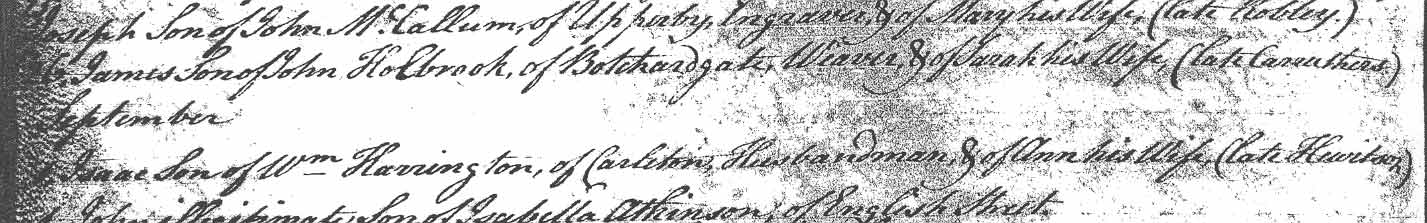 Joseph Son of John McCallum, of Upperby, Engraver, & of Mary his Wife, (late Robley.)
James Son of John Holbrook, of Botchardgate, Weaver, & of Sarah his Wife, (late Carruthers)
September
Isaac Son of Wm Harrington, of Carleton, Husbandman, & of Ann his Wife, (late Hewitson)
John illegitimate Son of Isabella Atkinson, of English Street